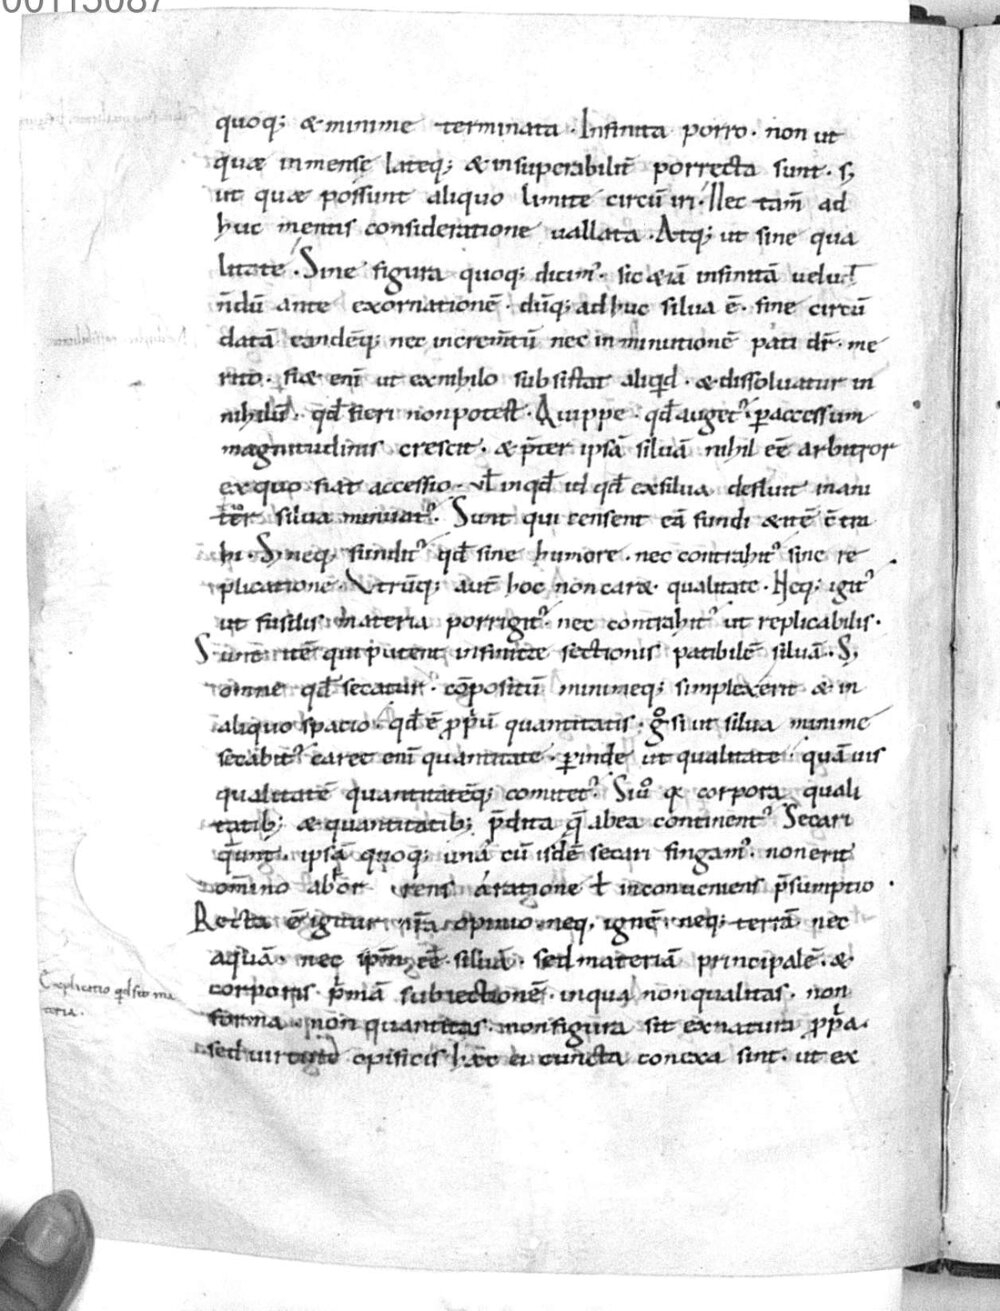 00115087
quoq; & minime terminata. Infinita porro. non ut
quæ inmense lateq; & insuperabilit̄ porrecta sunt. s;
ut quæ possunt aliquo limite circū iri. Nec tam̄ ad
huc mentis consideratione uallata. Atq; ut sine qua
litate. Sine figura quoq; dicim᷒. sic & iā infinitā uelut
n̄dū ante exornationē. dūq; ad huc silua ē. sine circū
datā eandēq; nec increm̄tū nec inminutionē pati dr̄. me
rito. fiæ eni ut ex nihilo subsistat aliqđ. & dissoluatur in
nihilū. qđ fieri non potest. Quippe qđ auget᷒. p̱ accessum
magnitudinis crescit. & p̄ter ipsā siluā nihil eē arbitror
ex quo fiat accessio. vł inqđ uł qđ ex silua defluit inani
ter silua minuat᷒. Sunt qui censent eā fundi & itē ctra
hi. S; neq; fundit᷒ qđ sine humore. nec contrahit᷒ sine re
plicatione. Vtrūq; aut̄ hoc non car& qualitate. Neq; igit᷒
ut fusilis materia porrigit᷒. nec contrahit᷒ ut replicabilis.
Sunt itē qui putent infinitæ sectionis patibilē siluā. S;
omne qđ secatur. cōpositū minimeq; simplex erit & in
aliquo spatio. qđ ē ꝓp̄ū quantitatis. g° si ut silua minime
secabit᷒ caret eni quantitate. p̱inde ut qualitate. quāuis
qualitatē quantitatēq; comitet᷒. Siu° q& corpora quali
tatib; & quantitatib; p̄dita q̄ ab ea continent᷒ Secari
q̄unt. ipsā quoq; unā cū isdē secari fingam᷒. non erit
om̄ino abhorrens a ratione ł inconueniens p̄sumptio.
Recta ē igitur nr̄a opinio neq, ignē. neq; terrā nec
aquā. nec ipm̄ eē siluā. sed materiā principalē. &
corporis p̄mā subiectionē. in qua non qualitas. non
forma non quantitas. non figura sit ex natura ꝓp̄a.
sed uirtute opificis hæc ei cuncta conexa sint. ut ex
Explicatio qđ sit ma
teria.